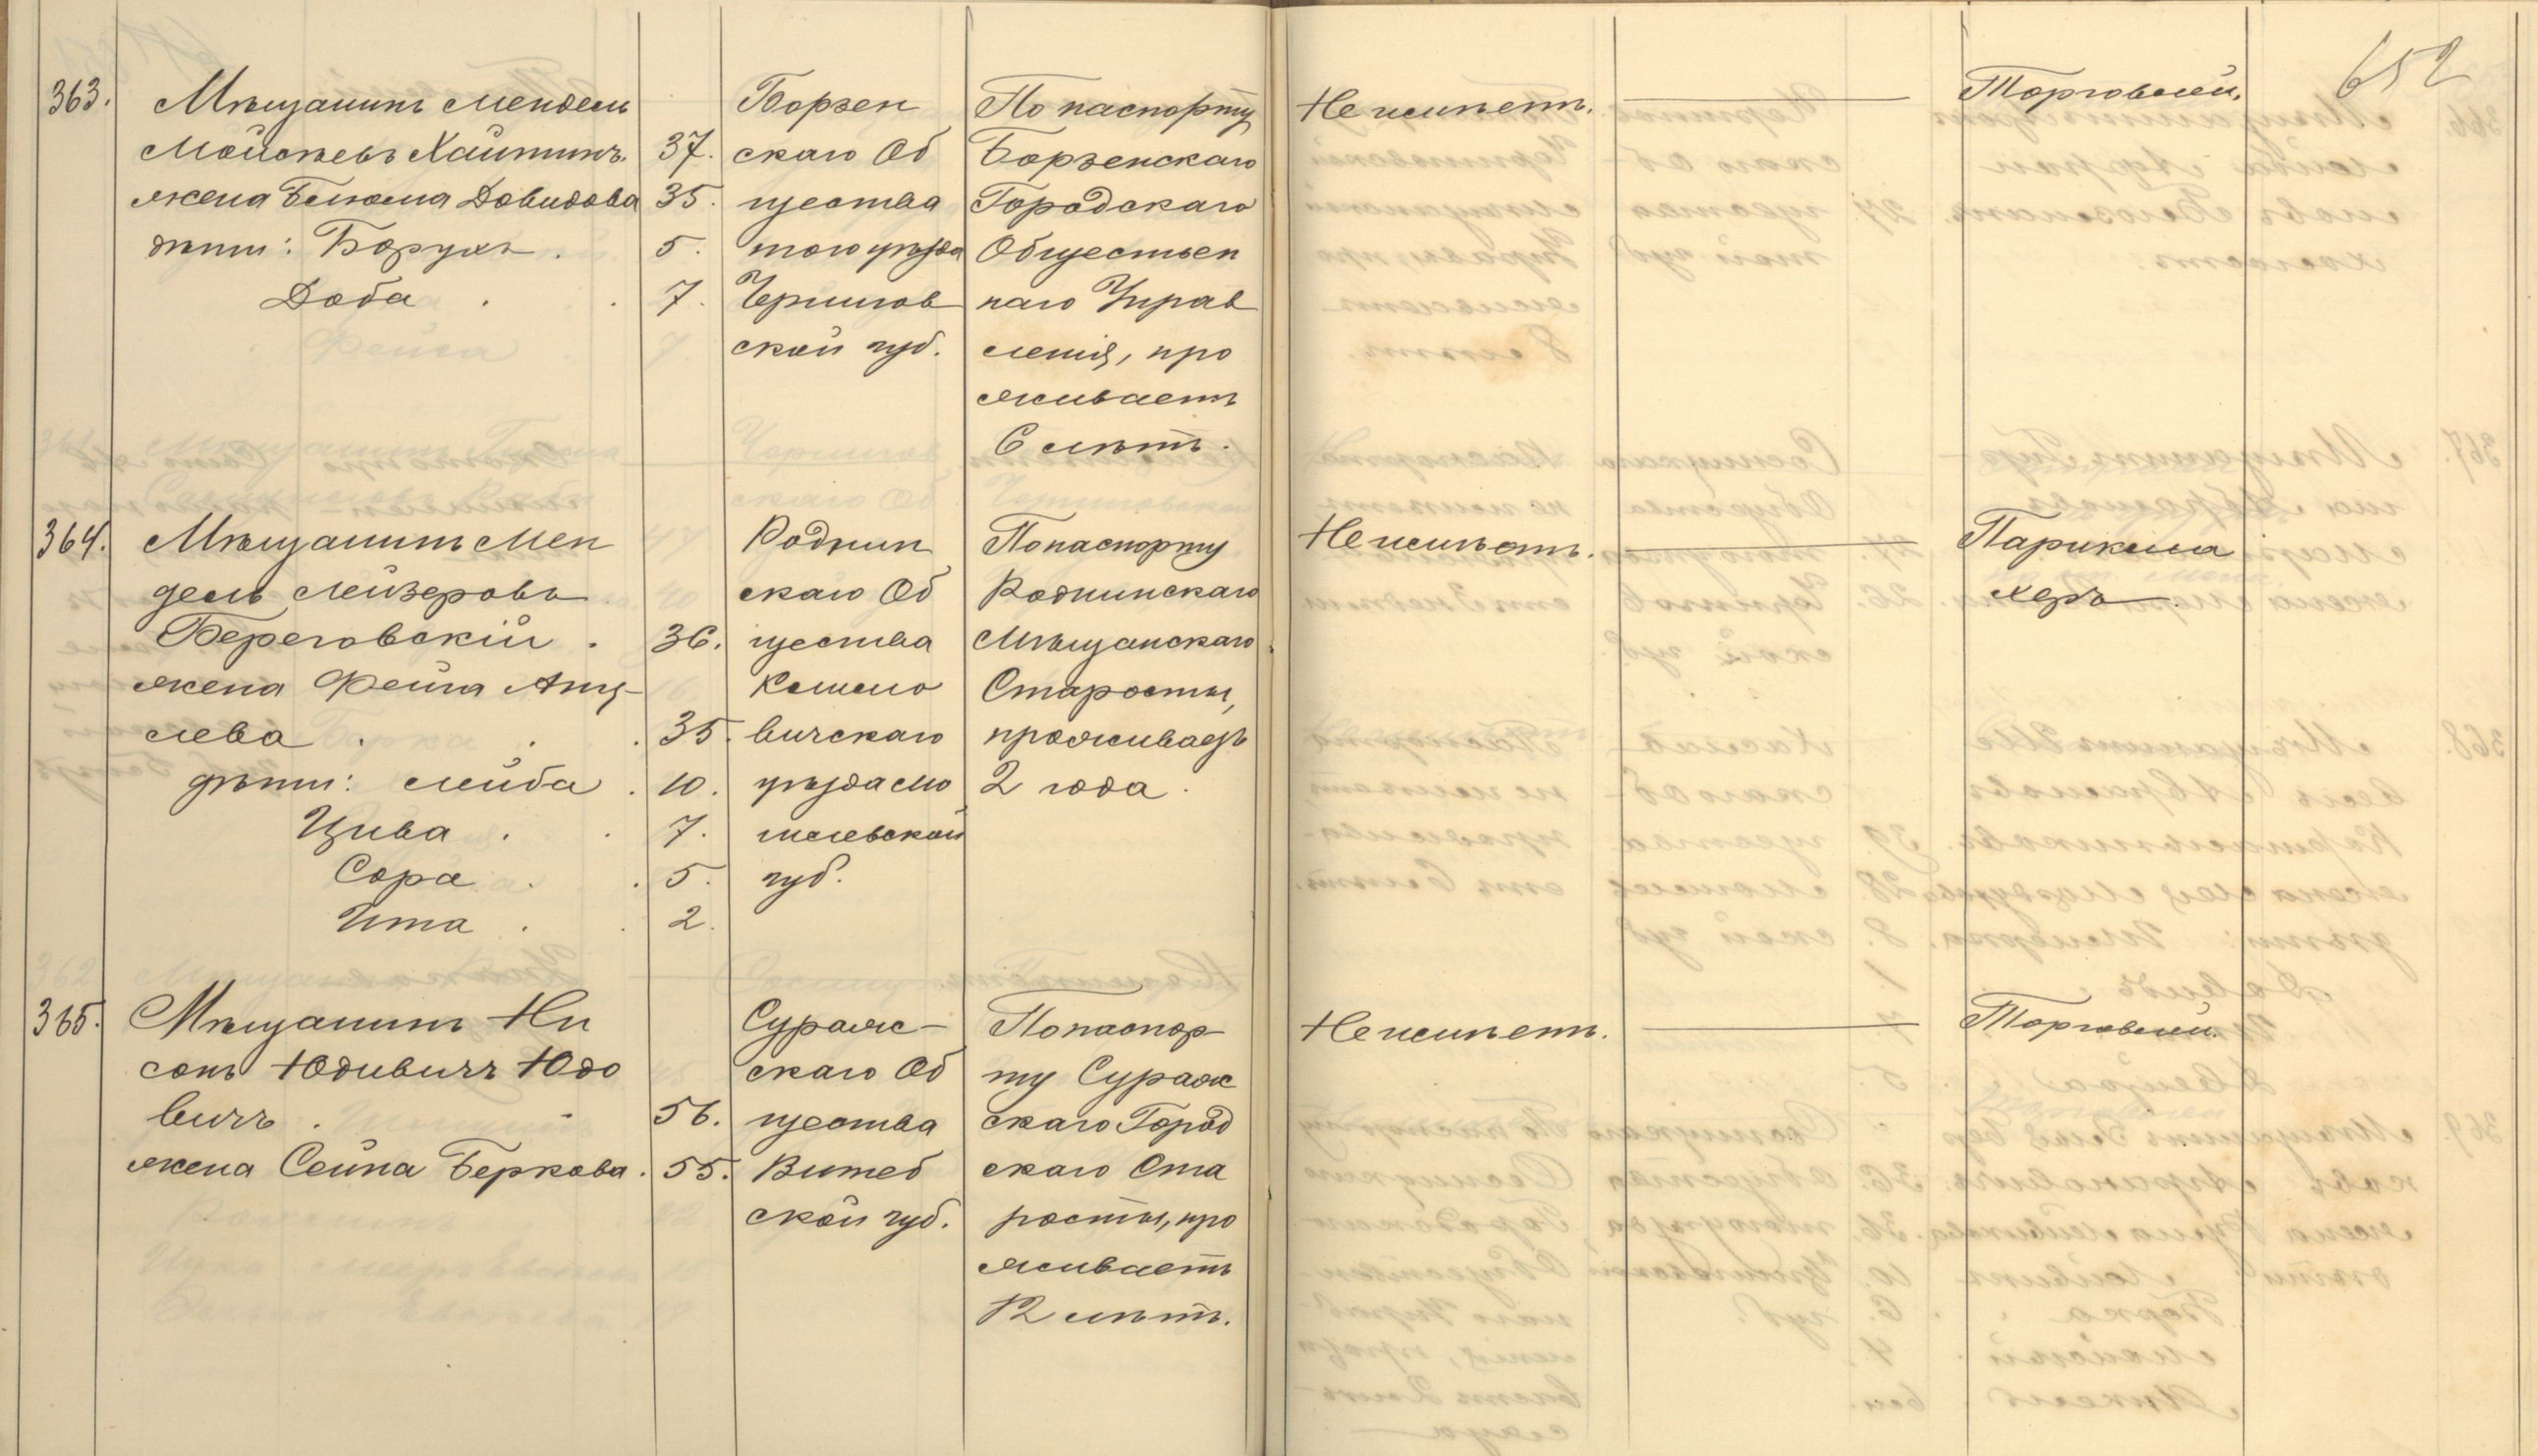 652
363.
Мѣщанинъ Мендель
Мойсѣевъ Хаитинъ. 37.
жена Бейла Довидова 35.
дѣти: Борухъ . 5.
Доба . . 7.
Борзен
скаго Об
щества
того уѣзда
Чернигов
ской губ.
По паспорту
Борзенскаго
Городскаго
Обществен
наго Управ
ленія, про
живаетъ
6 лѣтъ.
Не имѣетъ.
Торговлей.
364.
Мѣщанинъ Мен
дель Лейзеровъ
Береговскій . 36.
жена Фейга Анц-
лева . . . 35.
дѣти: Лейба . 10.
Цива . . 7.
Сора . . 5.
Ита . . 2.
Роднин
скаго Об
щества
Климо
вичскаго
уѣзда Мо
гилевской
губ.
По паспорту
Роднинскаго
Мѣщанскаго
Старосты,
проживаетъ
2 года.
Не имѣетъ.
Парикма
херъ.
365.
Мѣщанинъ Ни
сонъ Юдивичъ Юдо
вичъ . - 56.
жена Сейна Беркова. 55.
Сураж-
скаго Об
щества
Витеб
ской губ.
По паспор-
ту Сураж
скаго Город
скаго Ста
росты, про
живаетъ
12 лѣтъ.
Не имѣетъ.
Торговлей.